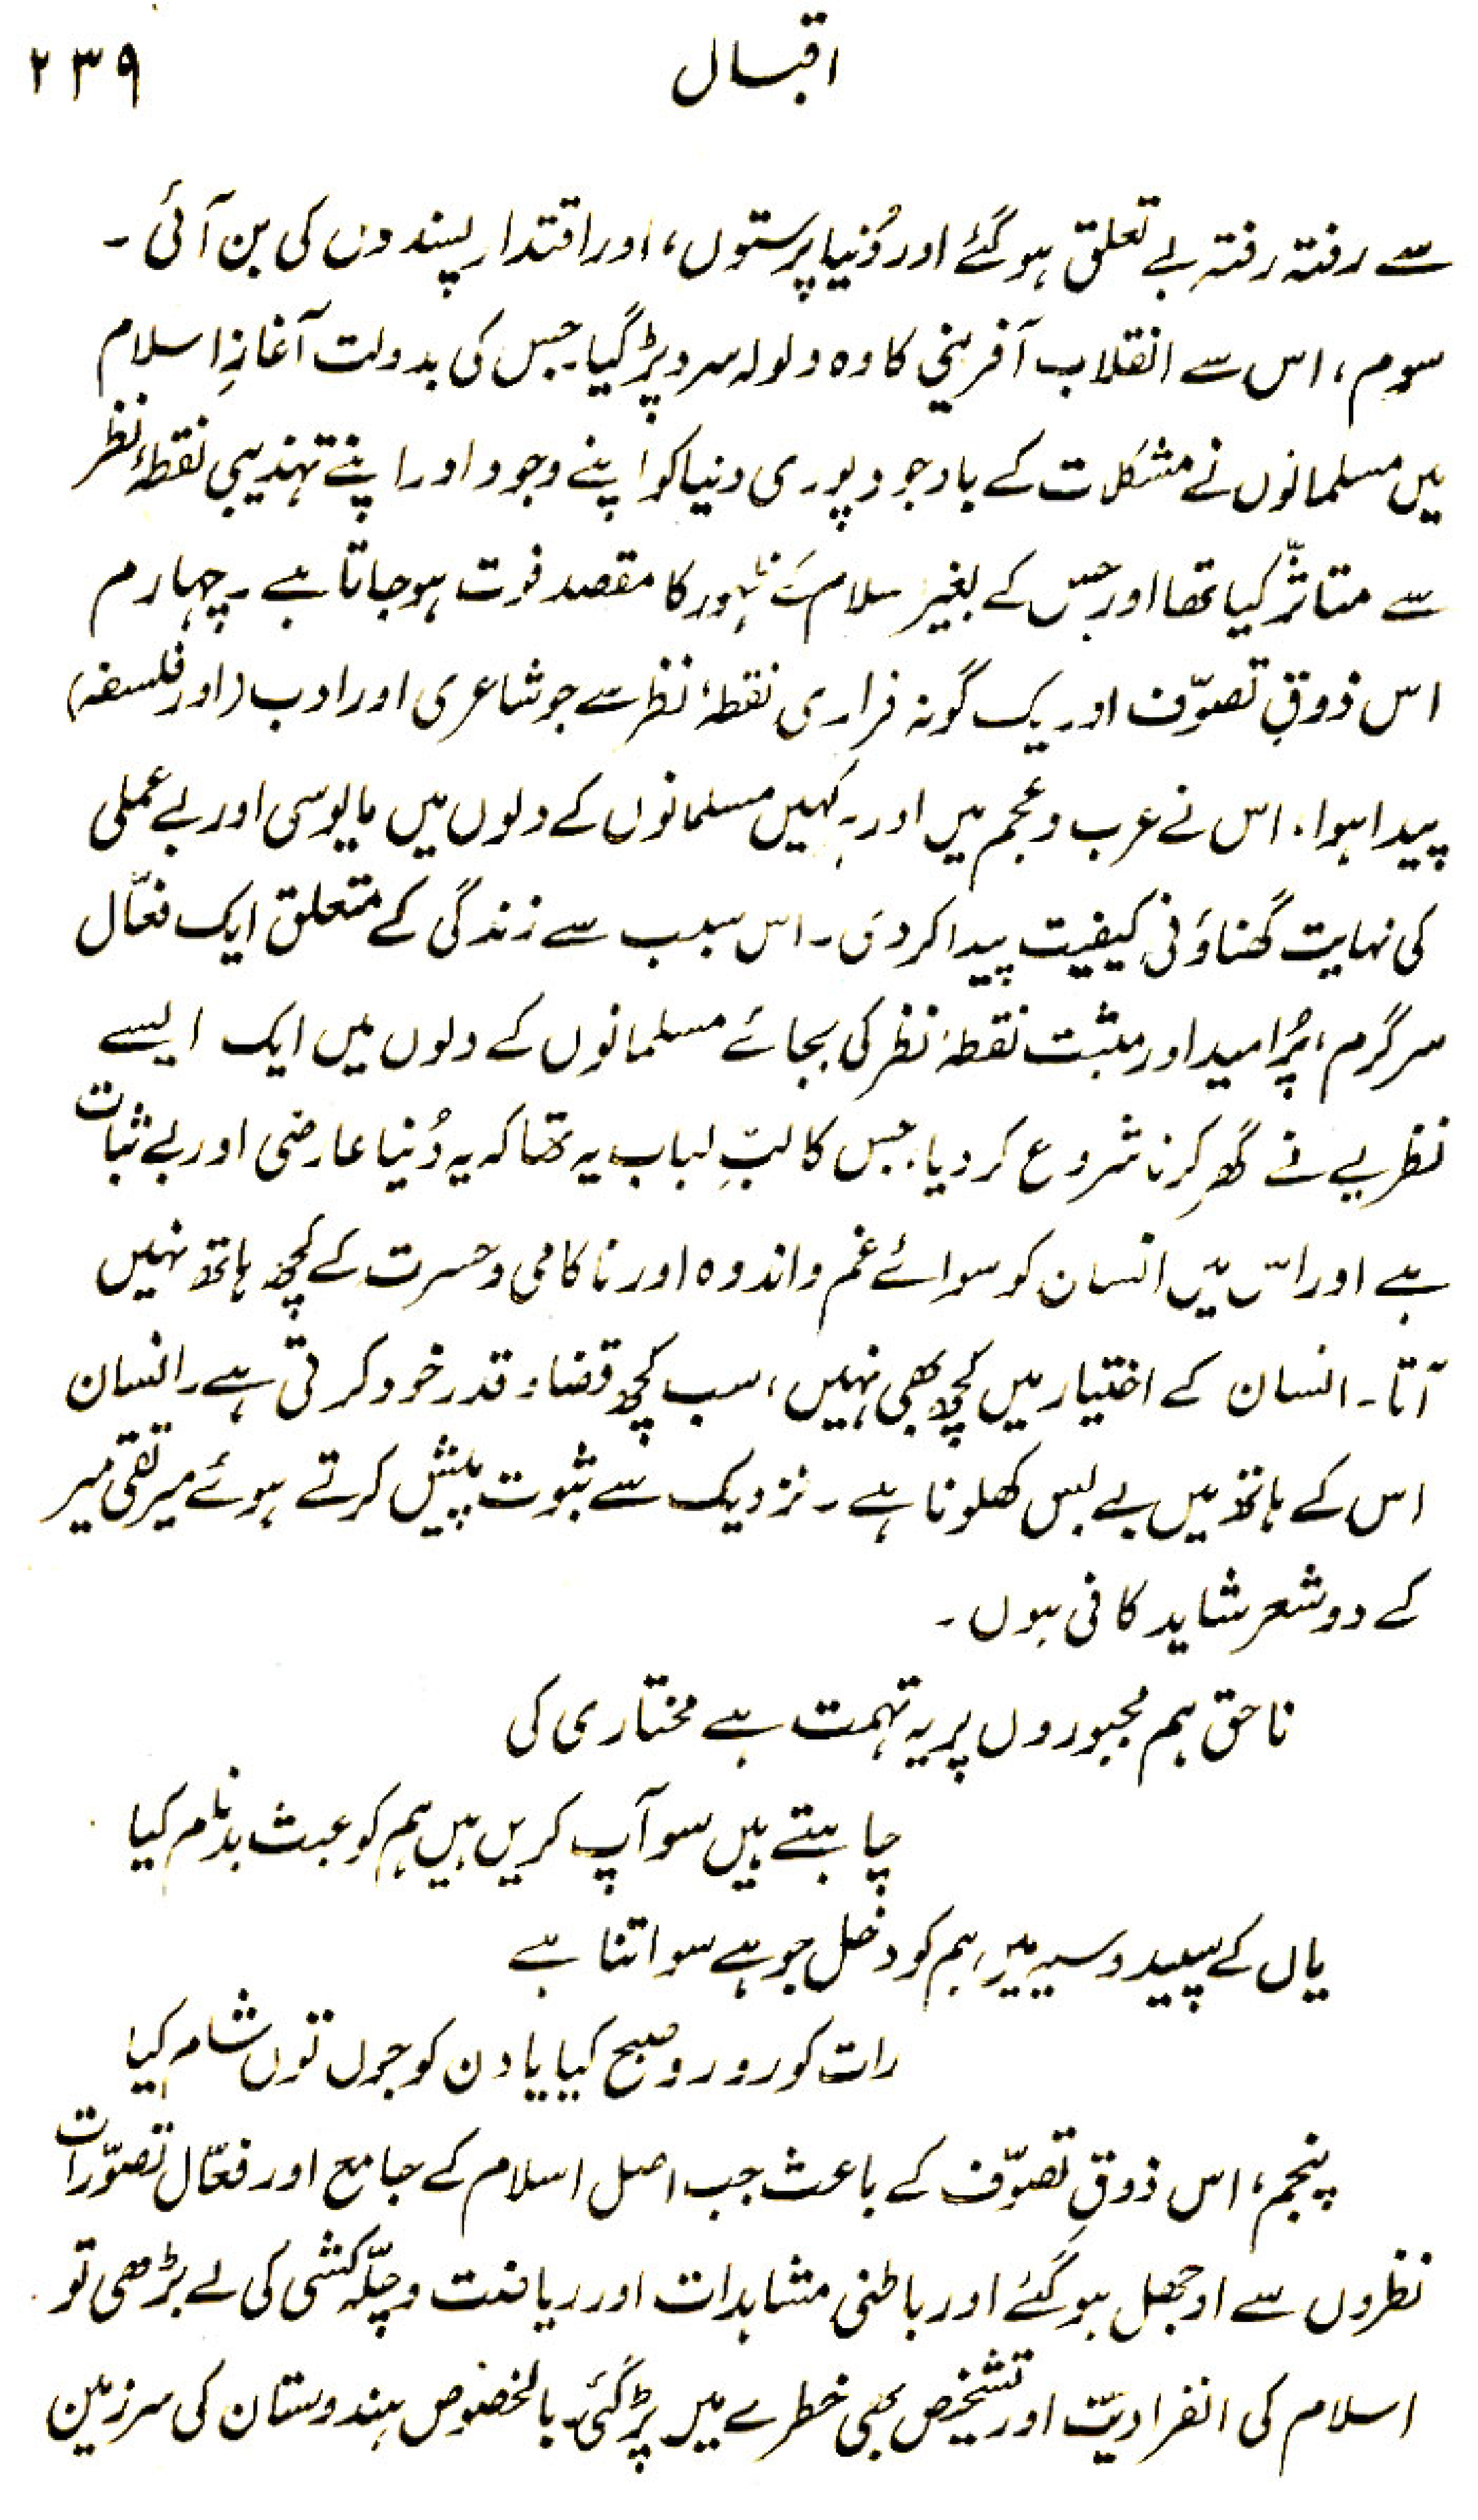 اقبال
۲۳۹
سے رفتہ رفتہ بے تعلق ہو گئے اور دُنیا پرستوں، اور اقتدار پسندوں کی بن آئی ۔
سوم، اس سے انقلاب آفرینی کا وہ ولولہ سرد پڑ گیا۔ جس کی بدولت آغازِ اسلام
میں مسلمانوں نے مشکلات کے باوجود پوری دنیا کو اپنے وجود اور اپنے تہذیبی نقطۂ نظر
سے متاثّر کیا تھا اور جس کے بغیر سلام کے ظہور کا مقصد فوت ہو جاتا ہے ۔ چہارم
اس ذوقِ تصوّف اور یک گونہ فراری نقطۂ نظر سے جو شاعری اور ادب (اور فلسفہ)
پیدا ہوا ۔ اس نے عرب و عجم میں اور ہر کہیں مسلمانوں کے دلوں میں مایوسی اور بے عملی
کی نہایت گھناؤنی کیفیت پیدا کر دی ۔ اس سبب سے زندگی کے متعلق ایک فعّال
سرگرم، پُر امید اور مثبت نقطۂ نظر کی بجائے مسلمانوں کے دلوں میں ایک ایسے
نظریے نے گھر کرنا شروع کر دیا، جس کا لبِّ لباب یہ تھا کہ یہ دُنیا عارضی اور بے ثبات
ہے اور اس میں انسان کو سوائے غم و اندوہ اور ناکامی و حسرت کے کچھ ہاتھ نہیں
آتا ۔ انسان کے اختیار میں کچھ بھی نہیں، سب کچھ قضا و قدر خود کرتی ہے ۔ انسان
اس کے ہاتھ میں بے بس کھلونا ہے ۔ نزدیک سے ثبوت پیش کرتے ہوئے میر تقی میر
کے دو شعر شاید کافی ہوں ۔
ناحق ہم مجبوروں پر یہ تہمت ہے مختاری کی
چاہتے ہیں سو آپ کریں ہیں ہم کو عبث بدنام کیا
یاں کے سپید و سیہ میں ہم کو دخل جو ہے سو اتنا ہے
رات کو رو رو صبح کیا یا دن کو جوں توں شام کیا
پنجم، اس ذوقِ تصوّف کے باعث جب اصل اسلام کے جامع اور فعّال تصوّرات
نظروں سے اوجھل ہو گئے اور باطنی مشاہدات اور ریاضت و چلّہ کشی کی لے بڑھی تو
اسلام کی انفرادیّت اور تشخیص بھی خطرے میں پڑ گئی۔ بالخصوص ہندوستان کی سرزمین